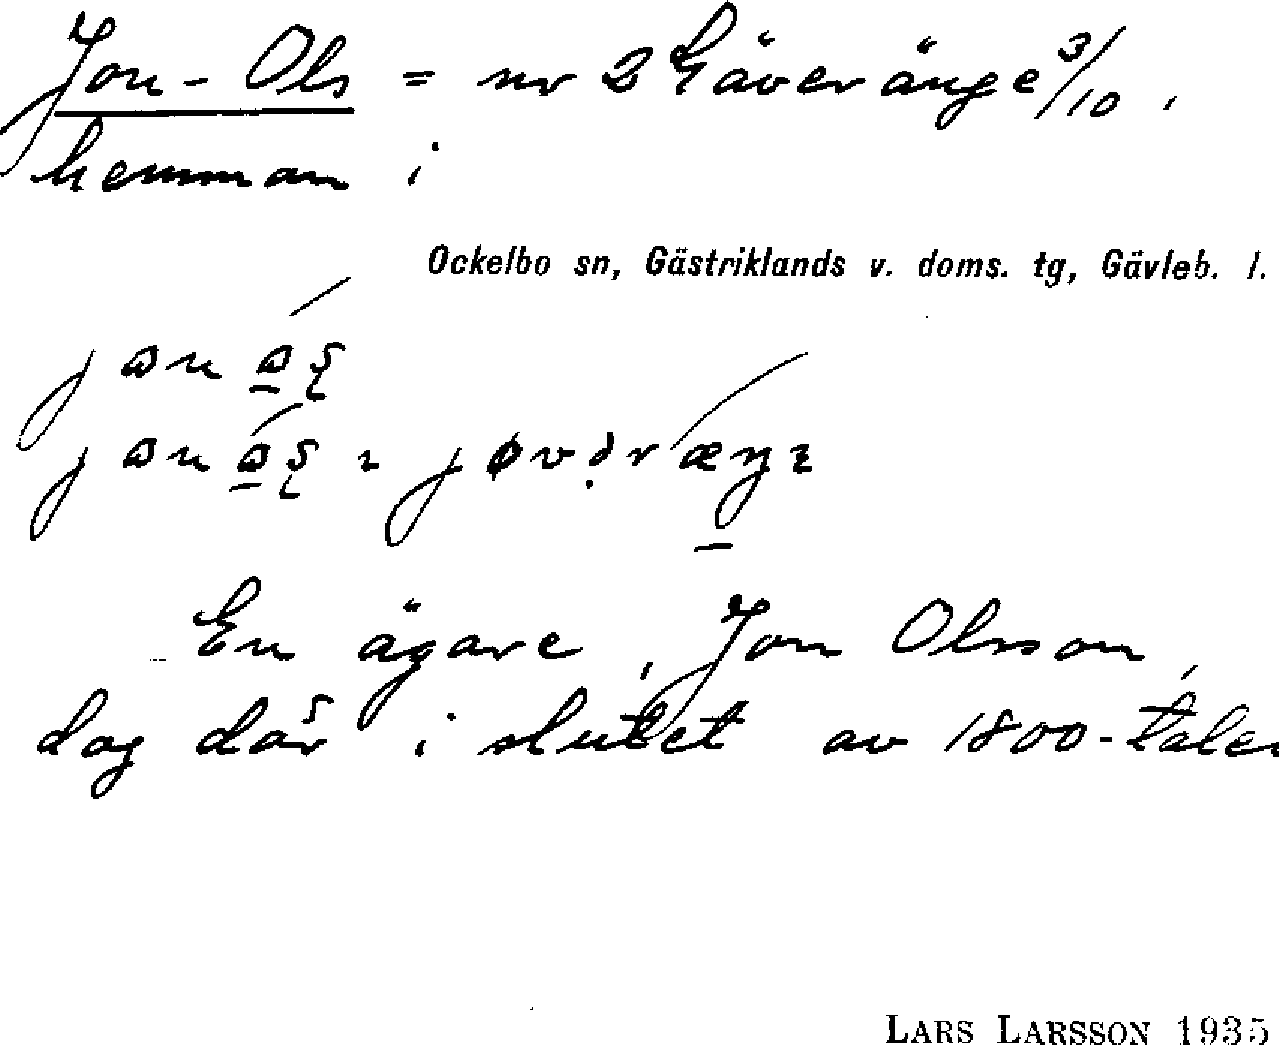 Jon-Ols = nr 2 Gäveränge 3/10,
hemman i
Ockelbo sn, Gästriklands v. doms. tg, Gävleb. l.
En ägare, Jon Olsson,
dog där i slutet av 1800-talet
LARS LARSSON 1935